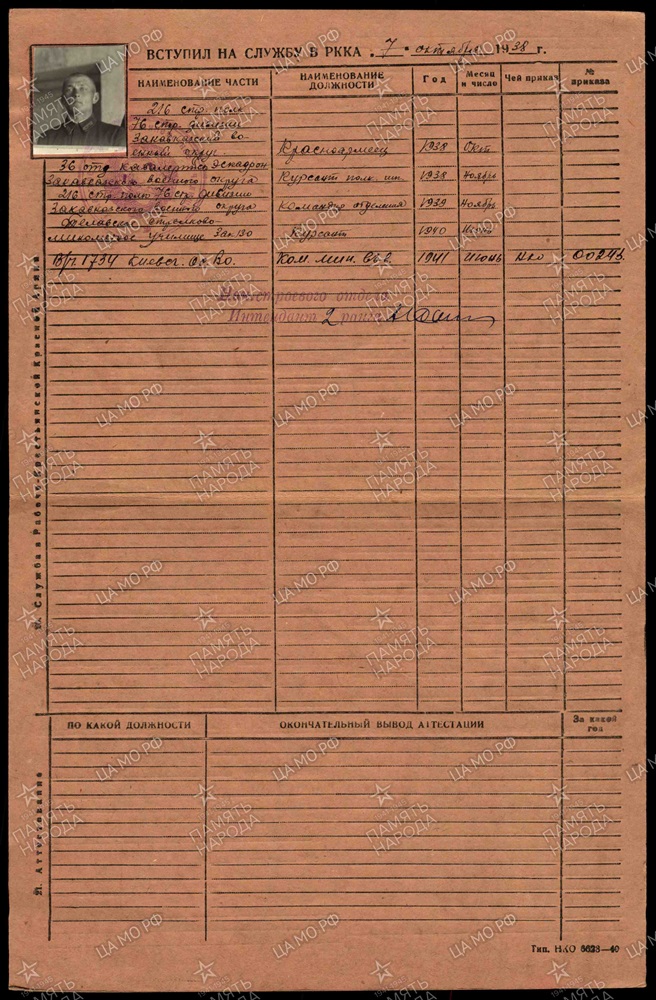 ВСТУПИЛ НА СЛУЖБУ В РККА „7" октября 1938 г.
НАИМЕНОВАНИЕ ЧАСТИ
НАИМЕНОВАНИЕ ДОЛЖНОСТИ
Год
Месяц и число
Чей приказ
№ приказа
216 стр. полк
76 стр. дивизии
Закавказский во
енный округ
Красноармеец 1938 Окт
36 отд кавалерийс эскадрон
Закавказского военного округа
Курсант полк. шк. 1938 Ноябрь
216 стр. полк 76 стр. дивизии
Закавказского военного округа
Командир отделения 1939 Ноябрь
стрелково-
миномётное училище ЗакВО
Курсант 1940
в/ч 1734 Киевск. ос. во.
Ком. мин. вз-а 1941 Июнь НКО 00243
Нач. строевого отдела
Интендант 2 ранга
19. Служба в Рабоче-Крестьянской Красной Армии
ПО КАКОЙ ДОЛЖНОСТИ
ОКОНЧАТЕЛЬНЫЙ ВЫВОД АТТЕСТАЦИИ
За какой год
21. Аттестование
Тип. НКО 6628—40
ЦА МО РФ
ПАМЯТЬ НАРОДА